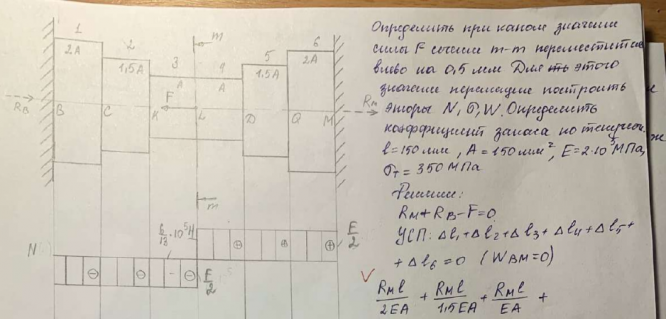 1
2A
2
1,5A
3
A
4
A
5
1,5A
6
2A
m
F
R_B
B
C
K
L
D
Q
M
R_M
m
N
6/13 · 10⁵ Н
F/2
F/2
⊖
⊖
-
⊖
⊕
⊕
⊕
Определить при каком значение
силы F сечение m-m переместится
влево на 0,5 мм Для этого
значение перемещие построить
эпюры N, σ, W. Определить
коэффициент запаса по текучести
l=150мм, A=150мм², E=2·10⁵МПа,
σт=350 МПа
Решение:
R_M+R_B-F=0
УСП: Δl₁+Δl₂+Δl₃+Δl₄+Δl₅+
+Δl₆=0 (W_BM=0)
✓ R_M l/2EA + R_M l/1,5EA + R_M l/EA +